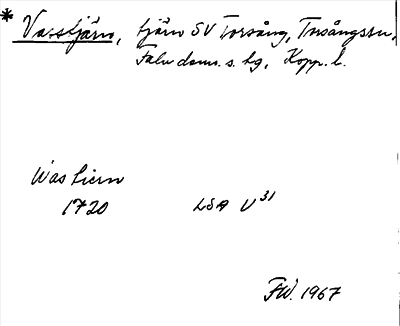 * Vasstjärn, tjärn SV Torsång, Torsångssn,
Falu doms. s. lg, Kopp. l.
Was tiern
1720 LSA U 31
FW. 1967